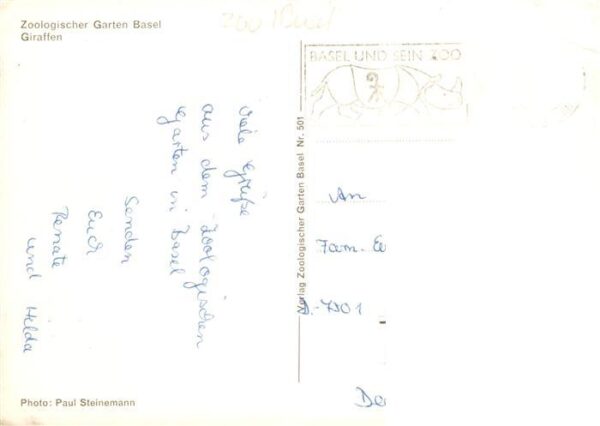 Zoologischer Garten Basel
Giraffen
BASEL UND SEIN ZOO
Viele Grüße
aus dem Zoologischen
Garten in Basel
senden
Euch
Renate
und Hilda
Verlag Zoologischer Garten Basel Nr. 501
An
Fam.
Photo: Paul Steinemann